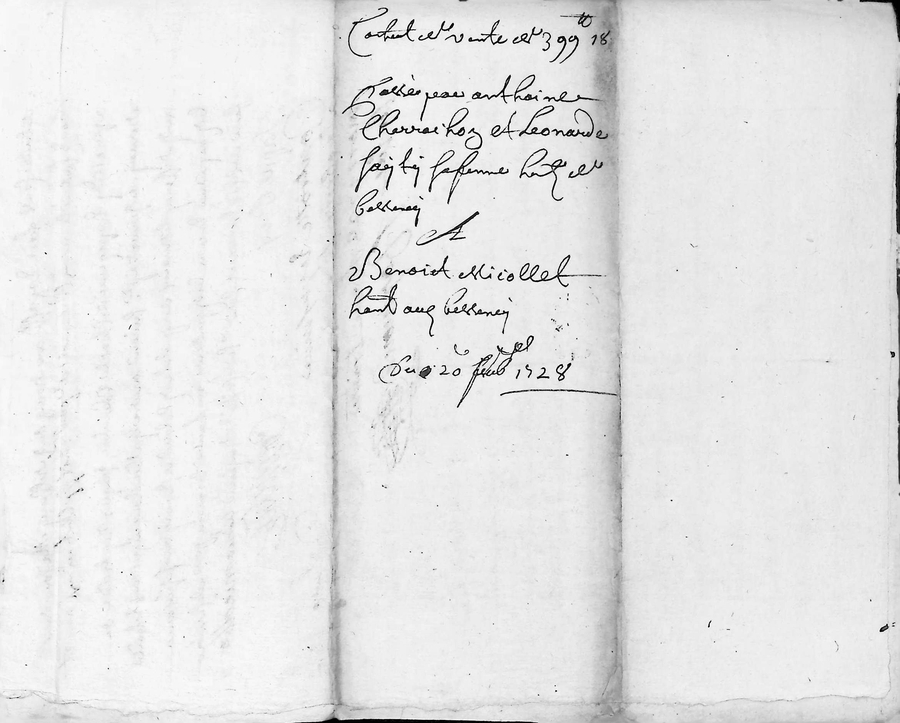 Contract de vente de 399 tt 18
Passé par anthoine
Charrachoz et Leonarde
sa femme hant de
bessenay
A
Benoict Nicollet
hant aud bessenay
Du 20 febv 1728